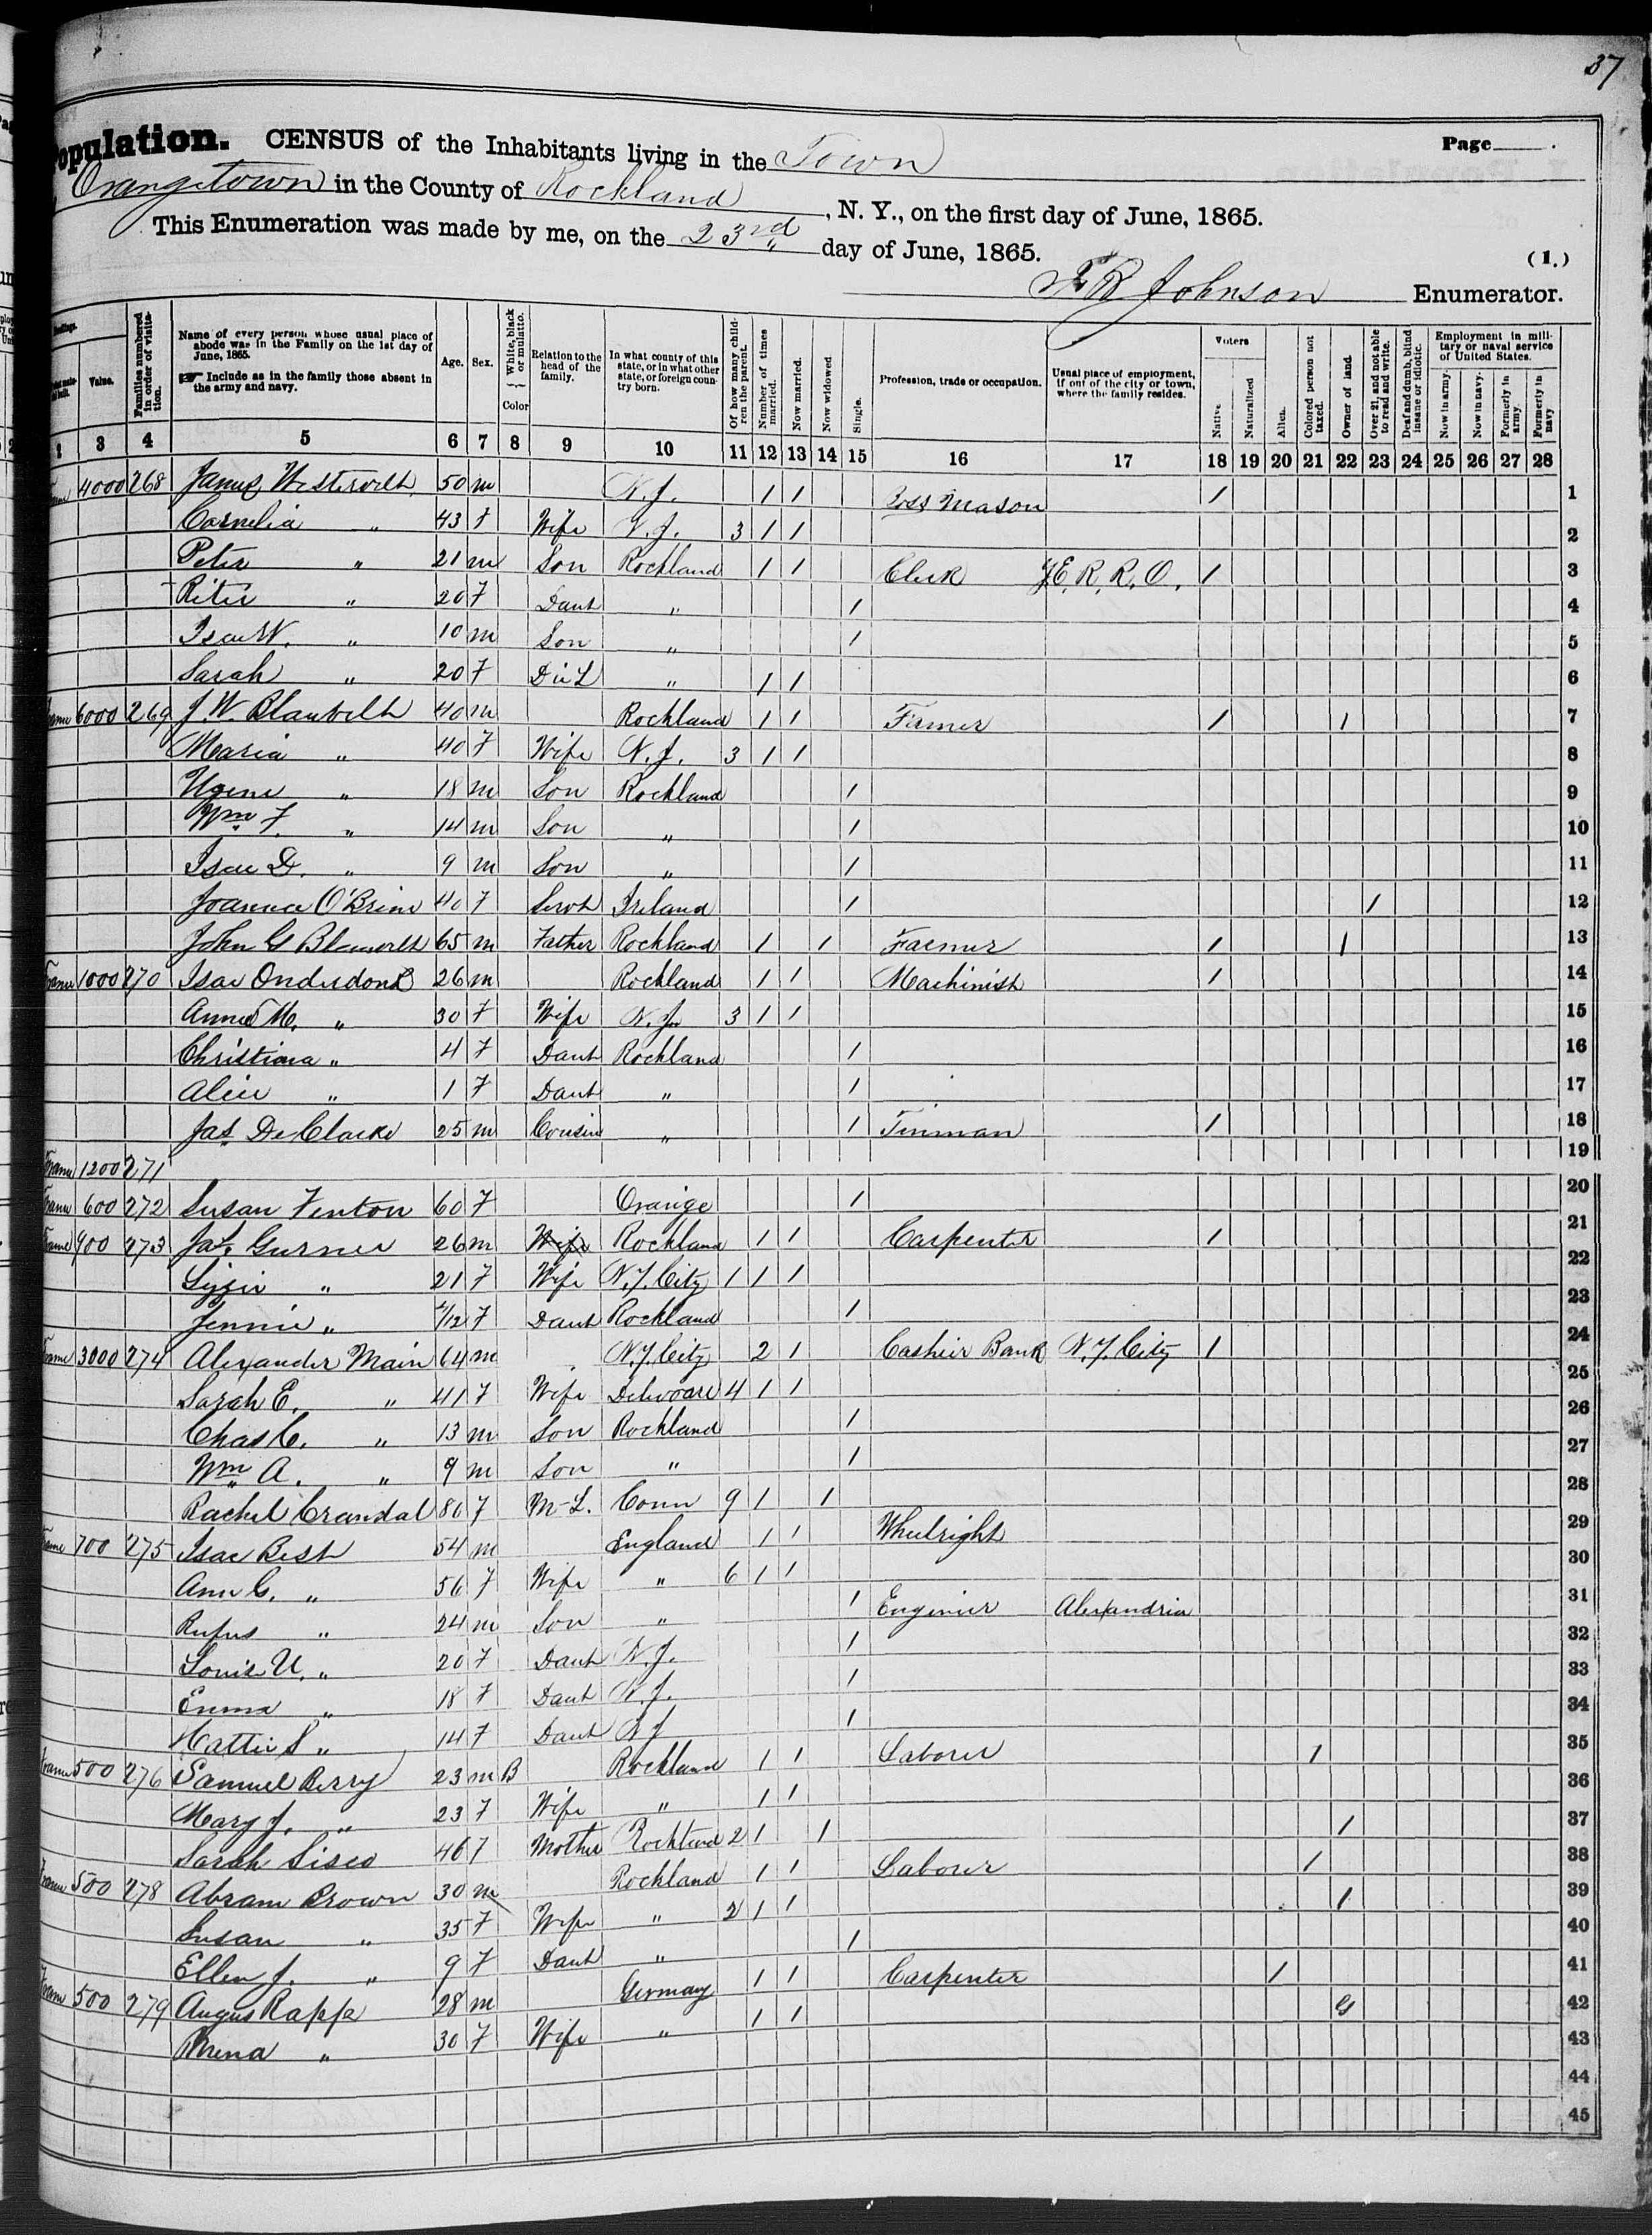 37
Population. CENSUS of the Inhabitants living in the Town Page
Orangetown in the County of Rockland, N. Y., on the first day of June, 1865.
This Enumeration was made by me, on the 23rd day of June, 1865. (1.)
Johnson Enumerator.
Value. Families numbered in order of visitation. Name of every person whose usual place of abode was in the Family on the 1st day of June, 1865. Include as in the family those absent in the army and navy. Age. Sex. White, black or mulatto. Color Relation to the head of the family. In what county of this state, or in what other state, or foreign country born. Of how many children the parent. Number of times married. Now married. Now widowed Single. Profession, trade or occupation. Usual place of employment, if out of the city or town, where the family resides. Voters Native. Naturalized Alien. Colored person not taxed. Owner of land. Over 21, and not able to read and write. Deaf and dumb, blind insane or idiotic. Employment in military or naval service of United States. Now in army. Now in navy. Formerly in army. Formerly in navy
3 4 5 6 7 8 9 10 11 12 13 14 15 16 17 18 19 20 21 22 23 24 25 26 27 28
4000 268 James Westervelt 50 m N. J. 1 1 Boss Mason 1 1
Cornelia " 43 F Wife N. J. 3 1 1 2
Peter " 21 m Son Rockland 1 1 Clerk E. R. R. O. 1 3
" 20 F Daut " 1 4
Isac W. " 10 m Son " 1 5
Sarah " 20 F D in L " 1 1 6
Frame 6000 269 J. W. Blauvelt 40 m Rockland 1 1 Farmer 1 1 7
Maria " 40 F Wife N. J. 3 1 1 8
Ugene " 18 m Son Rockland 1 9
Wm F. " 14 m Son " 1 10
Isac D. " 9 m Son " 1 11
Joanna O'Brine 40 F Servt Ireland 1 1 12
John G Blauvelt 65 m Father Rockland 1 1 Farmer 1 1 13
Frame 1000 270 Isac Onderdonk 26 m Rockland 1 1 Machinist 1 14
Anna M. " 30 F Wife N. J. 3 1 1 15
Christiana " 4 F Daut Rockland 1 16
Alice " 1 F Daut " 1 17
Jas De Clarke 25 m Cousin " 1 Tinman 1 18
Frame 1200 271 19
Frame 600 272 Susan Fenton 60 F Orange 1 20
Frame 900 273 Jas. Gurnee 26 m Wife Rockland 1 1 Carpenter 1 21
Lizzie " 21 F Wife N. Y. City 1 1 1 22
Jennie " /12 F Daut Rockland 1 23
Frame 3000 274 Alexander Main 64 m N. Y. City 2 1 Cashier Bank N. Y. City 1 24
Sarah E. " 41 F Wife Delware 4 1 1 25
Chas C. " 13 m Son Rockland 1 26
Wm A. " 9 m Son " 1 27
Rachel Crandal 80 F M-L. Conn 9 1 1 28
Frame 700 275 Isac Best 54 m England 1 1 Wheelright 29
Ann C. " 56 F Wife " 6 1 1 30
Rufus " 24 m Son " 1 Enginier Alexandria 31
Louis U. " 20 F Daut N. J. 1 32
Emma " 18 F Daut N. J. 1 33
Hattie S " 14 F Daut N J 1 34
Frame 500 276 Samuel Berry 23 m B Rockland 1 1 Laborer 1 35
Mary J. " 23 F Wife " 1 1 36
Sarah Sisco 46 F Mother Rockland 2 1 1 1 37
Frame 500 278 Abram Brown 30 m Rockland 1 1 Laborer 1 38
Susan " 35 F Wife " 2 1 1 1 39
Ellen J. " 9 F Daut " 1 40
Frame 500 279 Augus Rapp 28 m Germany 1 1 Carpenter 1 41
" 30 F Wife " 1 1 42
43
44
45